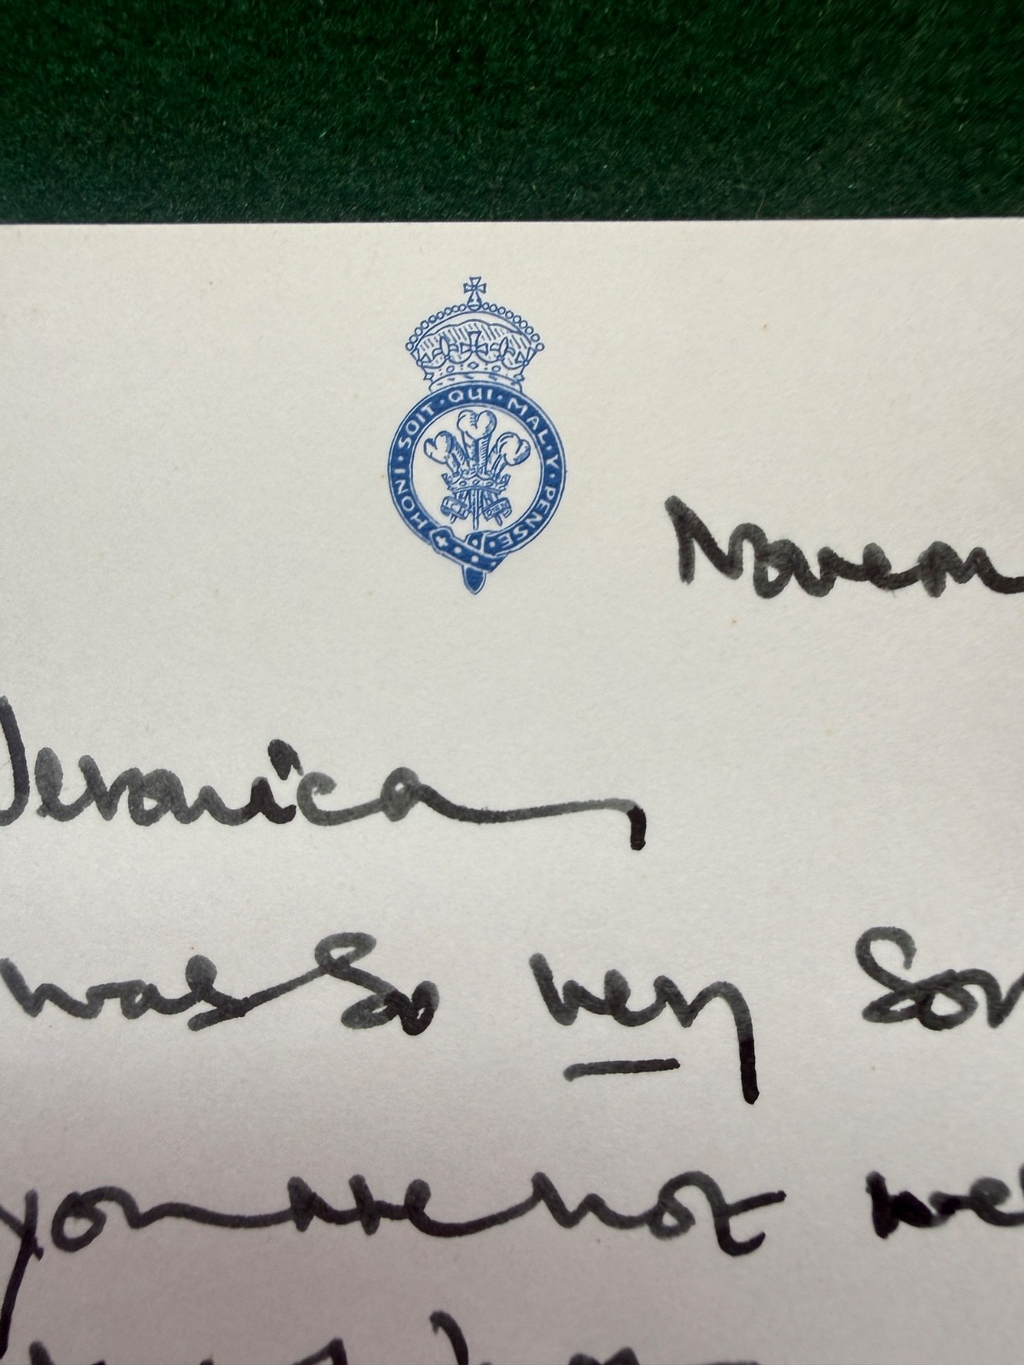 HONI · SOIT · QUI · MAL · Y · PENSE
Novem
Veronica,
was so very sor
you are not we